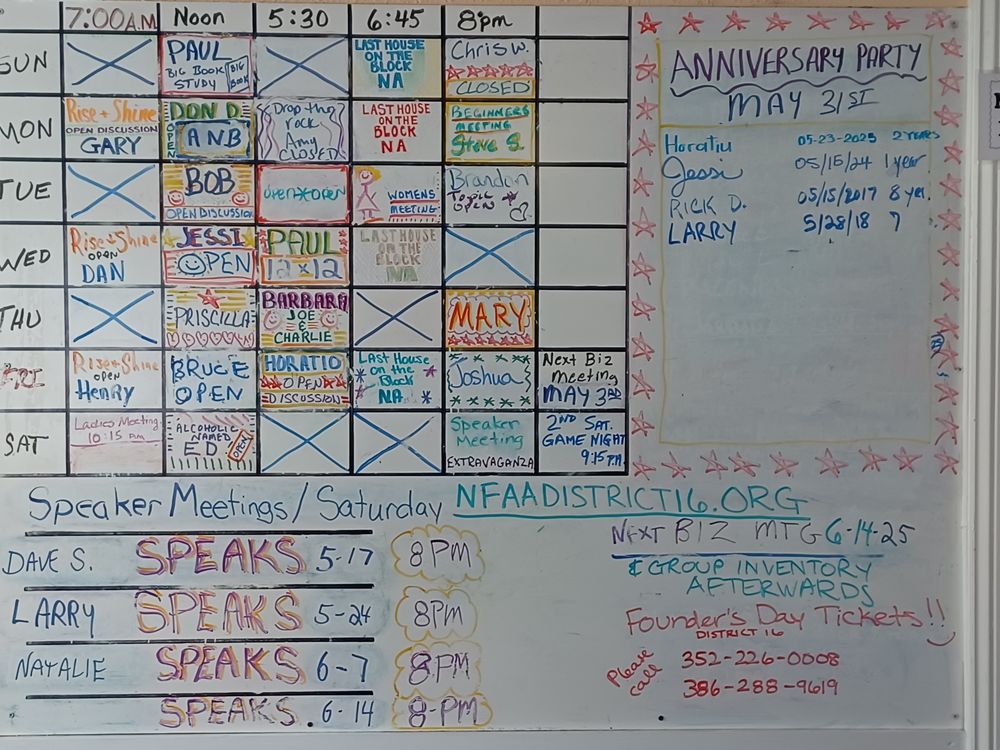 7:00A.M Noon 5:30 6:45 8pm
SUN
PAUL
BIG BOOK
STUDY
BIG
BOOK
LAST HOUSE
ON THE
BLOCK
NA
Chris W.
CLOSED
MON
Rise + Shine
OPEN DISCUSSION
GARY
DON D.
OPEN
ANB
Drop the
rock
Amy
CLOSED
LAST HOUSE
ON THE
BLOCK
NA
BEGINNERS
MEETING
Steve S.
TUE
BOB
OPEN DISCUSSION
open*open
WOMENS
MEETING
Brandon
Topic
OPEN
WED
Rise + Shine
OPEN
DAN
JESSI
OPEN
PAUL
12x12
LAST HOUSE
ON THE
BLOCK
NA
THU
PRISCILLA
BARBARA
JOE
&
CHARLIE
MARY
FRI
Rise + Shine
OPEN
Henry
BRUCE
OPEN
HORATIO
OPEN
DISCUSSION
LAST House
on the
Block
NA
Joshua
Next Biz
meeting
MAY 3RD
SAT
Ladies Meeting
10:15 P.M
ALCOHOLIC
NAMED
ED.
OPEN
Speaker
Meeting
EXTRAVAGANZA
2ND SAT.
GAME NIGHT
9:15 P.M.
ANNIVERSARY PARTY
MAY 31ST
Horatiu 05-23-2025 2 YEARS
Jessi 05/15/24 1 year
RICK D. 05/15/2017 8 yr.
LARRY 5/28/18 7
Speaker Meetings/Saturday NFAADISTRICT16.ORG
DAVE S. SPEAKS 5-17 8 PM
LARRY SPEAKS 5-24 8PM
NATALIE SPEAKS 6-7 8 PM
SPEAKS. 6-14 8-PM
NEXT BIZ MTG 6-14-25
& GROUP INVENTORY
AFTERWARDS
Founder's Day Tickets!!
DISTRICT 16
Please
call
352-226-0008
386-288-9619